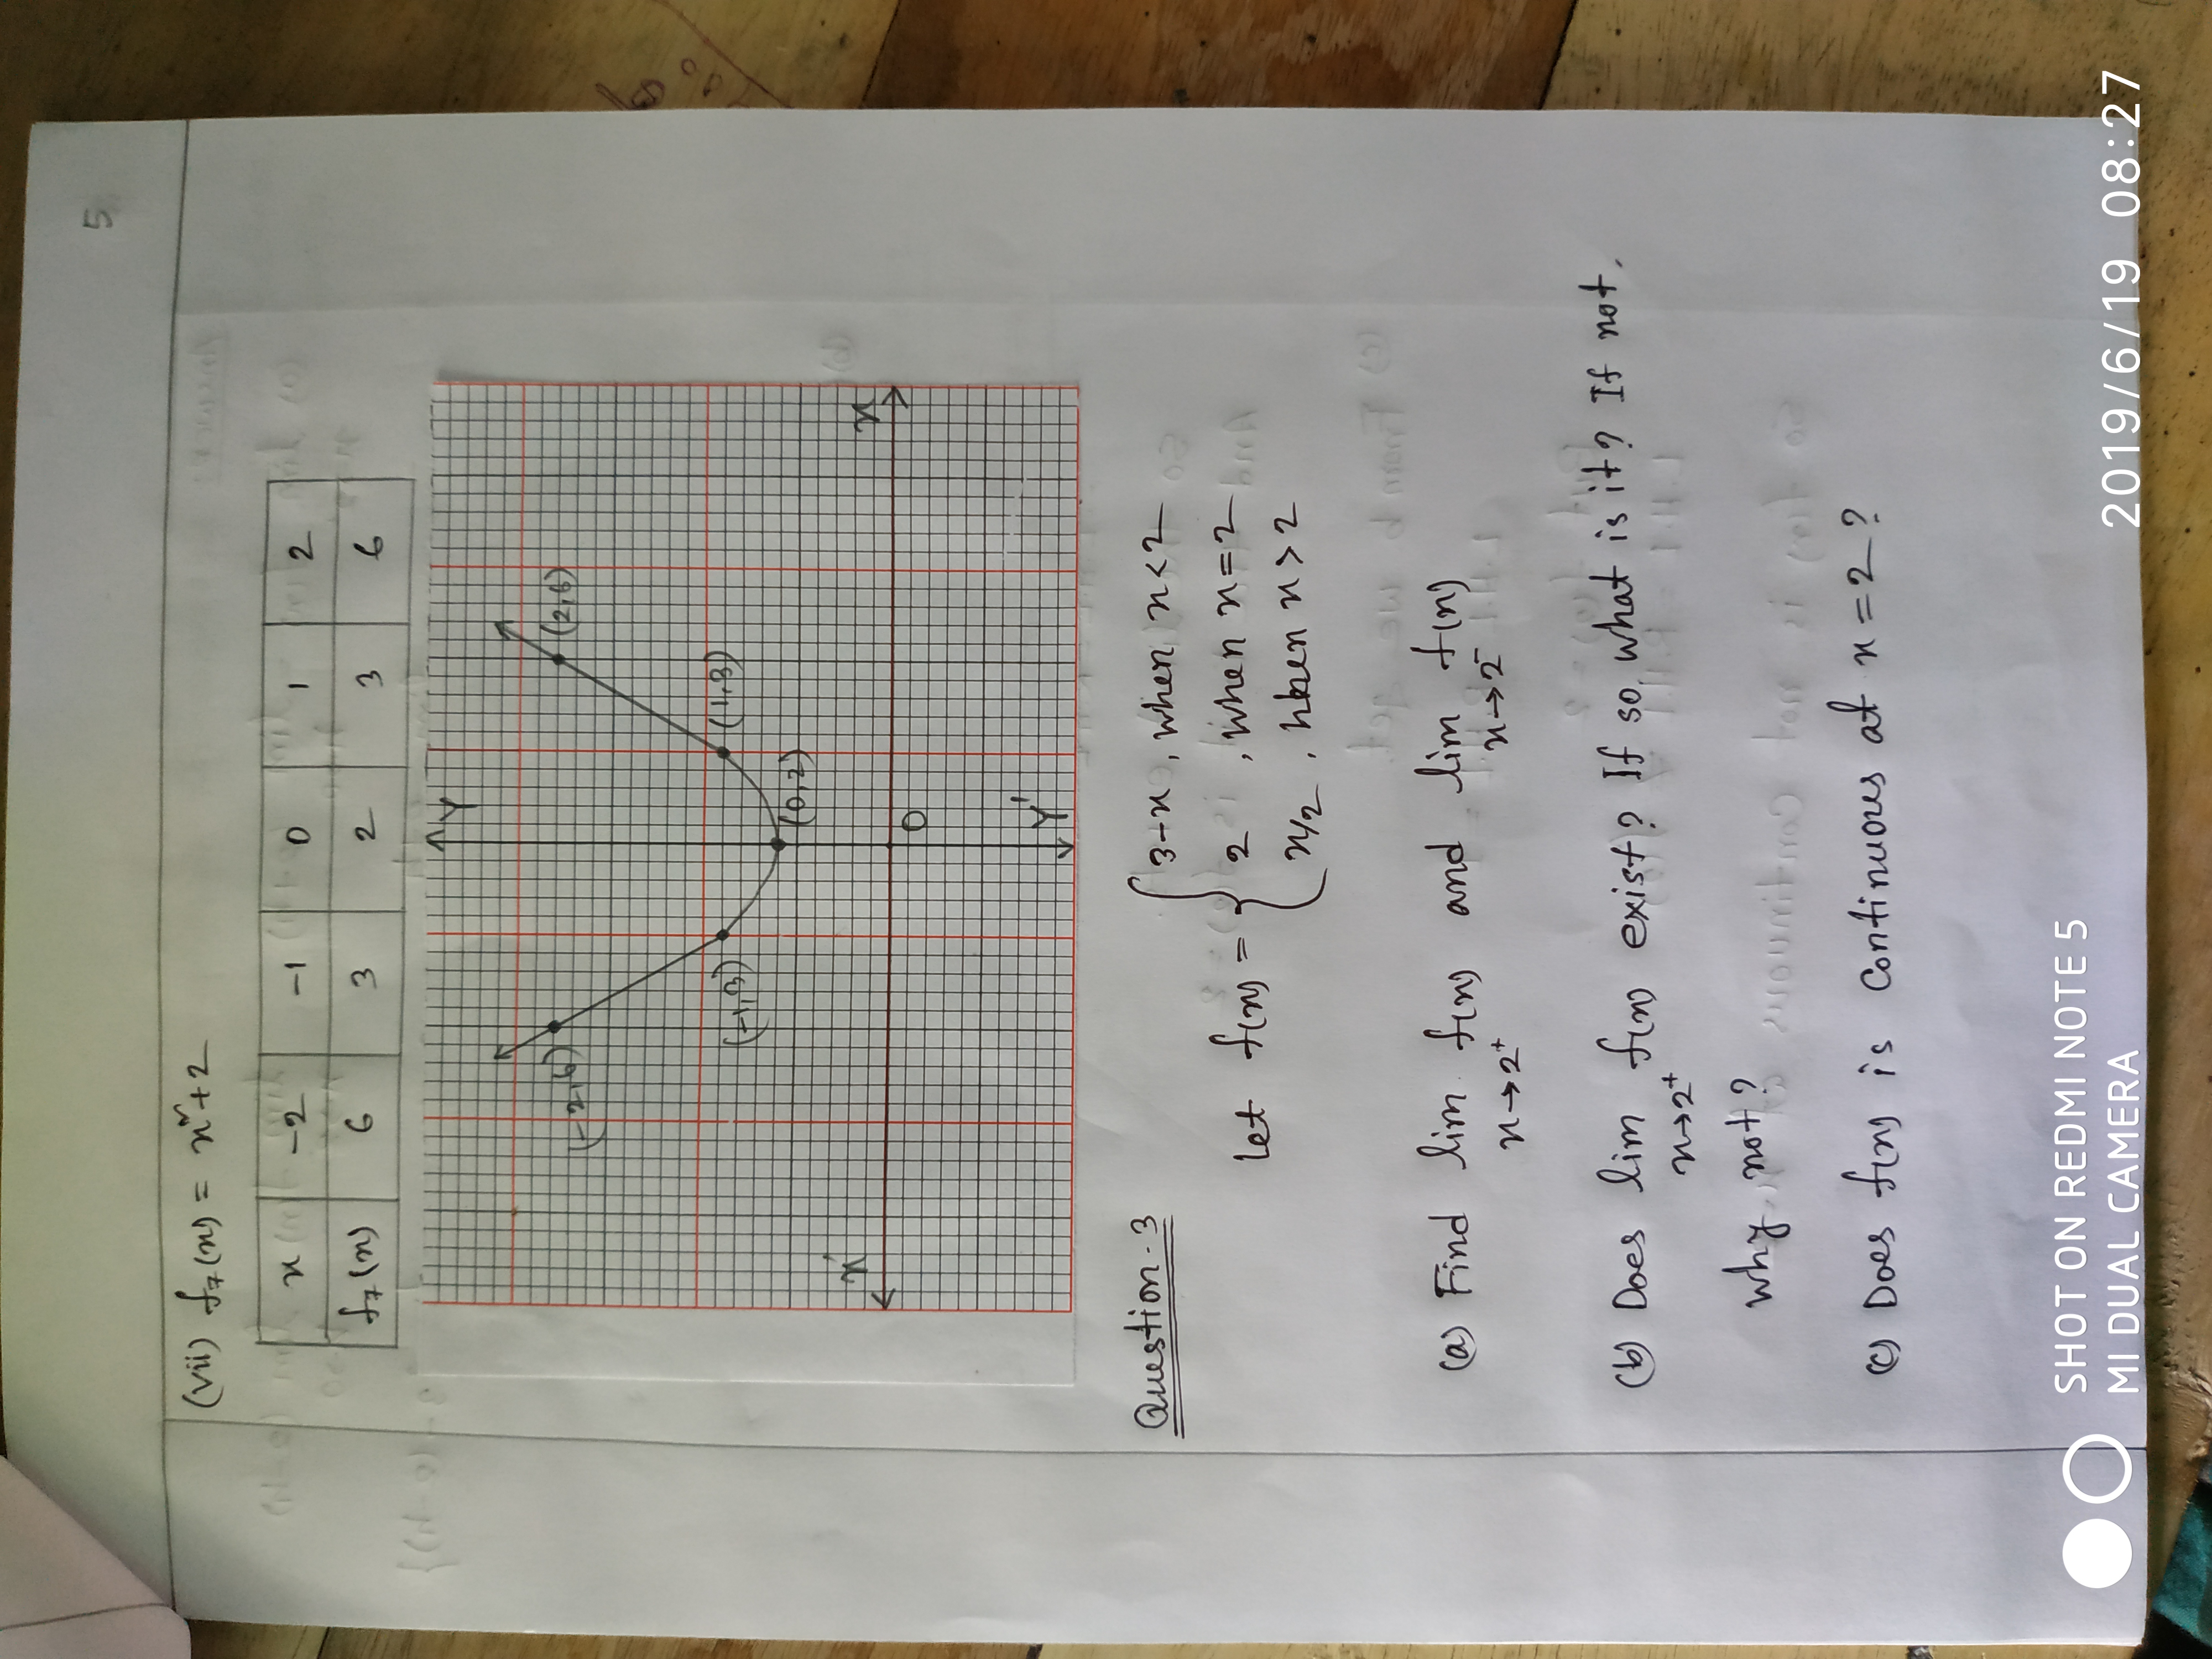 5
(vii) f₇(x) = x² + 2
x -2 -1 0 1 2
f₇(x) 6 3 2 3 6
Y
(-2,6) (2,6)
(-1,3) (1,3)
(0,2)
x' x
O
Y'
Question - 3
Let f(x) = { 3-x , when x < 2
2 , when x = 2
x/2 , when x > 2
(a) Find lim f(x) and lim f(x)
x→2⁺ x→2⁻
(b) Does lim f(x) exist? If so, what is it? If not,
x→2⁺
why not?
(c) Does f(x) is continuous at x = 2?
SHOT ON REDMI NOTE 5
MI DUAL CAMERA
2019/6/19 08:27